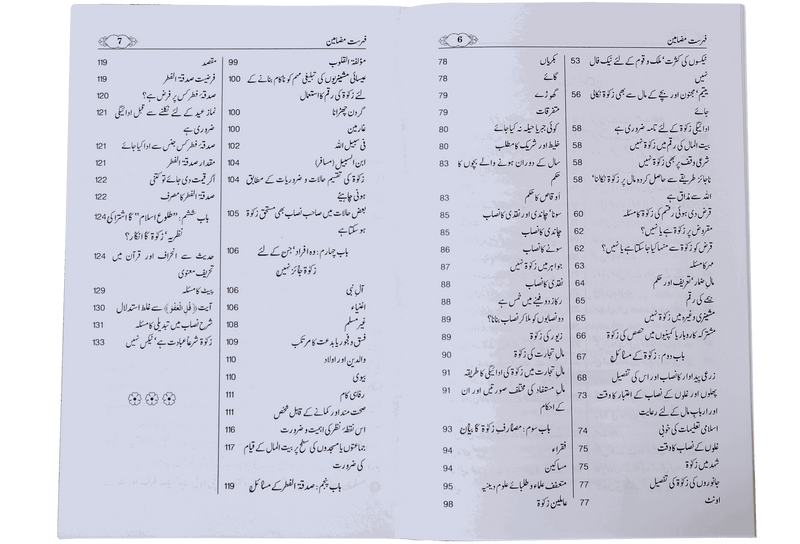 فہرست مضامین 6
نیکسوں کی کثرت‘ ملک و قوم کے لئے نیک فال 53
نہیں
یتیم‘ مجنون اور بچے کے مال سے بھی زکوٰۃ نکالی 56
جائے
ادائیگی زکوٰۃ کے لئے نامہ ضروری ہے 58
بیت المال کی رقم میں زکوٰۃ نہیں 58
شرعی وقف پر بھی زکوٰۃ نہیں 58
ناجائز طریقے سے حاصل کردہ مال پر زکوٰۃ نکالنا‘ 58
اللہ سے مذاق ہے
قرض دی ہوئی رقم کی زکوٰۃ کا مسئلہ 60
مقروض پر زکوٰۃ ہے یا نہیں؟ 62
قرض کو زکوٰۃ سے منہا کیا جا سکتا ہے یا نہیں؟ 62
مہر کا مسئلہ 63
مال ضمار‘ تعریف اور حکم 64
بیمے کی رقم 65
مشینری وغیرہ میں زکوٰۃ نہیں 65
مشترکہ کاروبار یا کمپنیوں میں حصص کی زکوٰۃ 66
باب دوم: زکوٰۃ کے مسائل 67
زرعی پیداوار کا نصاب اور اس کی تفصیل 68
پھلوں اور غلوں کے نصاب کے اعتبار کا وقت 73
اور ارباب مال کے لئے رعایت
اسلامی تعلیمات کی خوبی 74
غلوں کے نصاب کا وقت 75
شہد میں زکوٰۃ 75
جانوروں کی زکوٰۃ کی تفصیل 77
اونٹ 77
بکریاں 78
گائے 78
گھوڑے 79
متفرقات 79
کوئی جبر یا حیلہ نہ کیا جائے 80
خلیط اور شریک کا مطلب 80
سال کے دوران ہونے والے بچوں کا 83
حکم
اوقاص کا حکم 83
سونا‘ چاندی اور نقدی کا نصاب 85
چاندی کا نصاب 85
سونے کا نصاب 86
جواہر میں زکوٰۃ نہیں 87
نقدی کا نصاب 88
رکاز دفینے میں خمس ہے 88
دو نصابوں کو ملا کر نصاب بنانا؟ 89
زیور کی زکوٰۃ 89
مال تجارت کی زکوٰۃ 90
مال تجارت میں زکوٰۃ کی ادائیگی کا طریقہ 91
مال مستفاد کی مختلف صورتیں اور ان 91
کے احکام
باب سوم: مصارف زکوٰۃ کا بیان 93
فقراء 94
مساکین 94
متعفف علماء و طلبائے علوم دینیہ 95
عاملین زکوٰۃ 98
فہرست مضامین 7
مؤلفۃ القلوب 99
عیسائی مشینریوں کی تبلیغی مہم کو ناکام بنانے کے 100
لئے زکوٰۃ کی رقم کا استعمال
گردن چھڑانا 100
غارمین 100
فی سبیل اللہ 102
ابن السبیل (مسافر) 104
زکوٰۃ کی تقسیم حالات و ضروریات کے مطابق 104
ہونی چاہیئے
بعض حالات میں صاحب نصاب بھی مستحق زکوٰۃ 105
ہو سکتا ہے
باب چہارم: وہ افراد‘ جن کے لئے 106
زکوٰۃ جائز نہیں
آل نبی 106
اغنیاء 106
غیر مسلم 108
فسق و فجور یا بدعت کا مرتکب 109
والدین اور اولاد 110
بیوی 110
رفاہی کام 111
صحت مند اور کمانے کے قابل شخص 111
اس نقطۂ نظر کی اہمیت و ضرورت 116
جماعتوں یا مسجدوں کی سطح پر بیت المال کے قیام 117
کی ضرورت
باب پنجم: صدقۃ الفطر کے مسائل 119
مقصد 119
فرضیت صدقۃ الفطر 119
صدقۂ فطر کس پر فرض ہے؟ 120
نماز عید کے لئے نکلنے سے قبل ادائیگی 121
ضروری ہے
صدقۂ فطر کس جنس سے ادا کیا جائے 121
مقدار صدقۃ الفطر 121
اگر قیمت دی جائے تو کتنی 122
صدقۃ الفطر کا مصرف 122
باب ششم: ”طلوع اسلام“ کا اشتراکی 124
نظریہ‘ زکوٰۃ کا انکار؟
حدیث سے انحراف اور قرآن میں 124
تحریف معنوی
پیٹ کا مسئلہ 129
آیت ﴿قُلِ الْعَفْوَ﴾ سے غلط استدلال 130
شرح نصاب میں تبدیلی کا مسئلہ 131
زکوٰۃ شرعاً عبادت ہے‘ ٹیکس نہیں 133